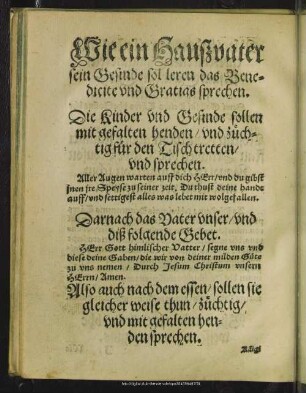 Wie ein Haußvater
sein Gesinde sol leren das Bene-
dicite vnd Gratias sprechen.
Die Kinder vnd Gesinde sollen
mit gefalten henden / vnd züch-
tig für den Tisch tretten /
vnd sprechen.
Aller Augen warten auff dich HErr / vnd du gibst
jnen jre Speyse zu seiner zeit, Du thust deine handt
auff / vnd settigest alles was lebet mit wolgefallen.
Darnach das Vater vnser / vnd
diß folgende Gebet.
HErr Gott himlischer Vatter / segne vns vnd
diese deine Gaben / die wir von deiner milden Güte
zu vns nemen / Durch Jesum Christum vnsern
HErrn / Amen.
Also auch nach dem essen / sollen sie
gleicher weise thun / züchtig /
vnd mit gefalten hen-
den sprechen.